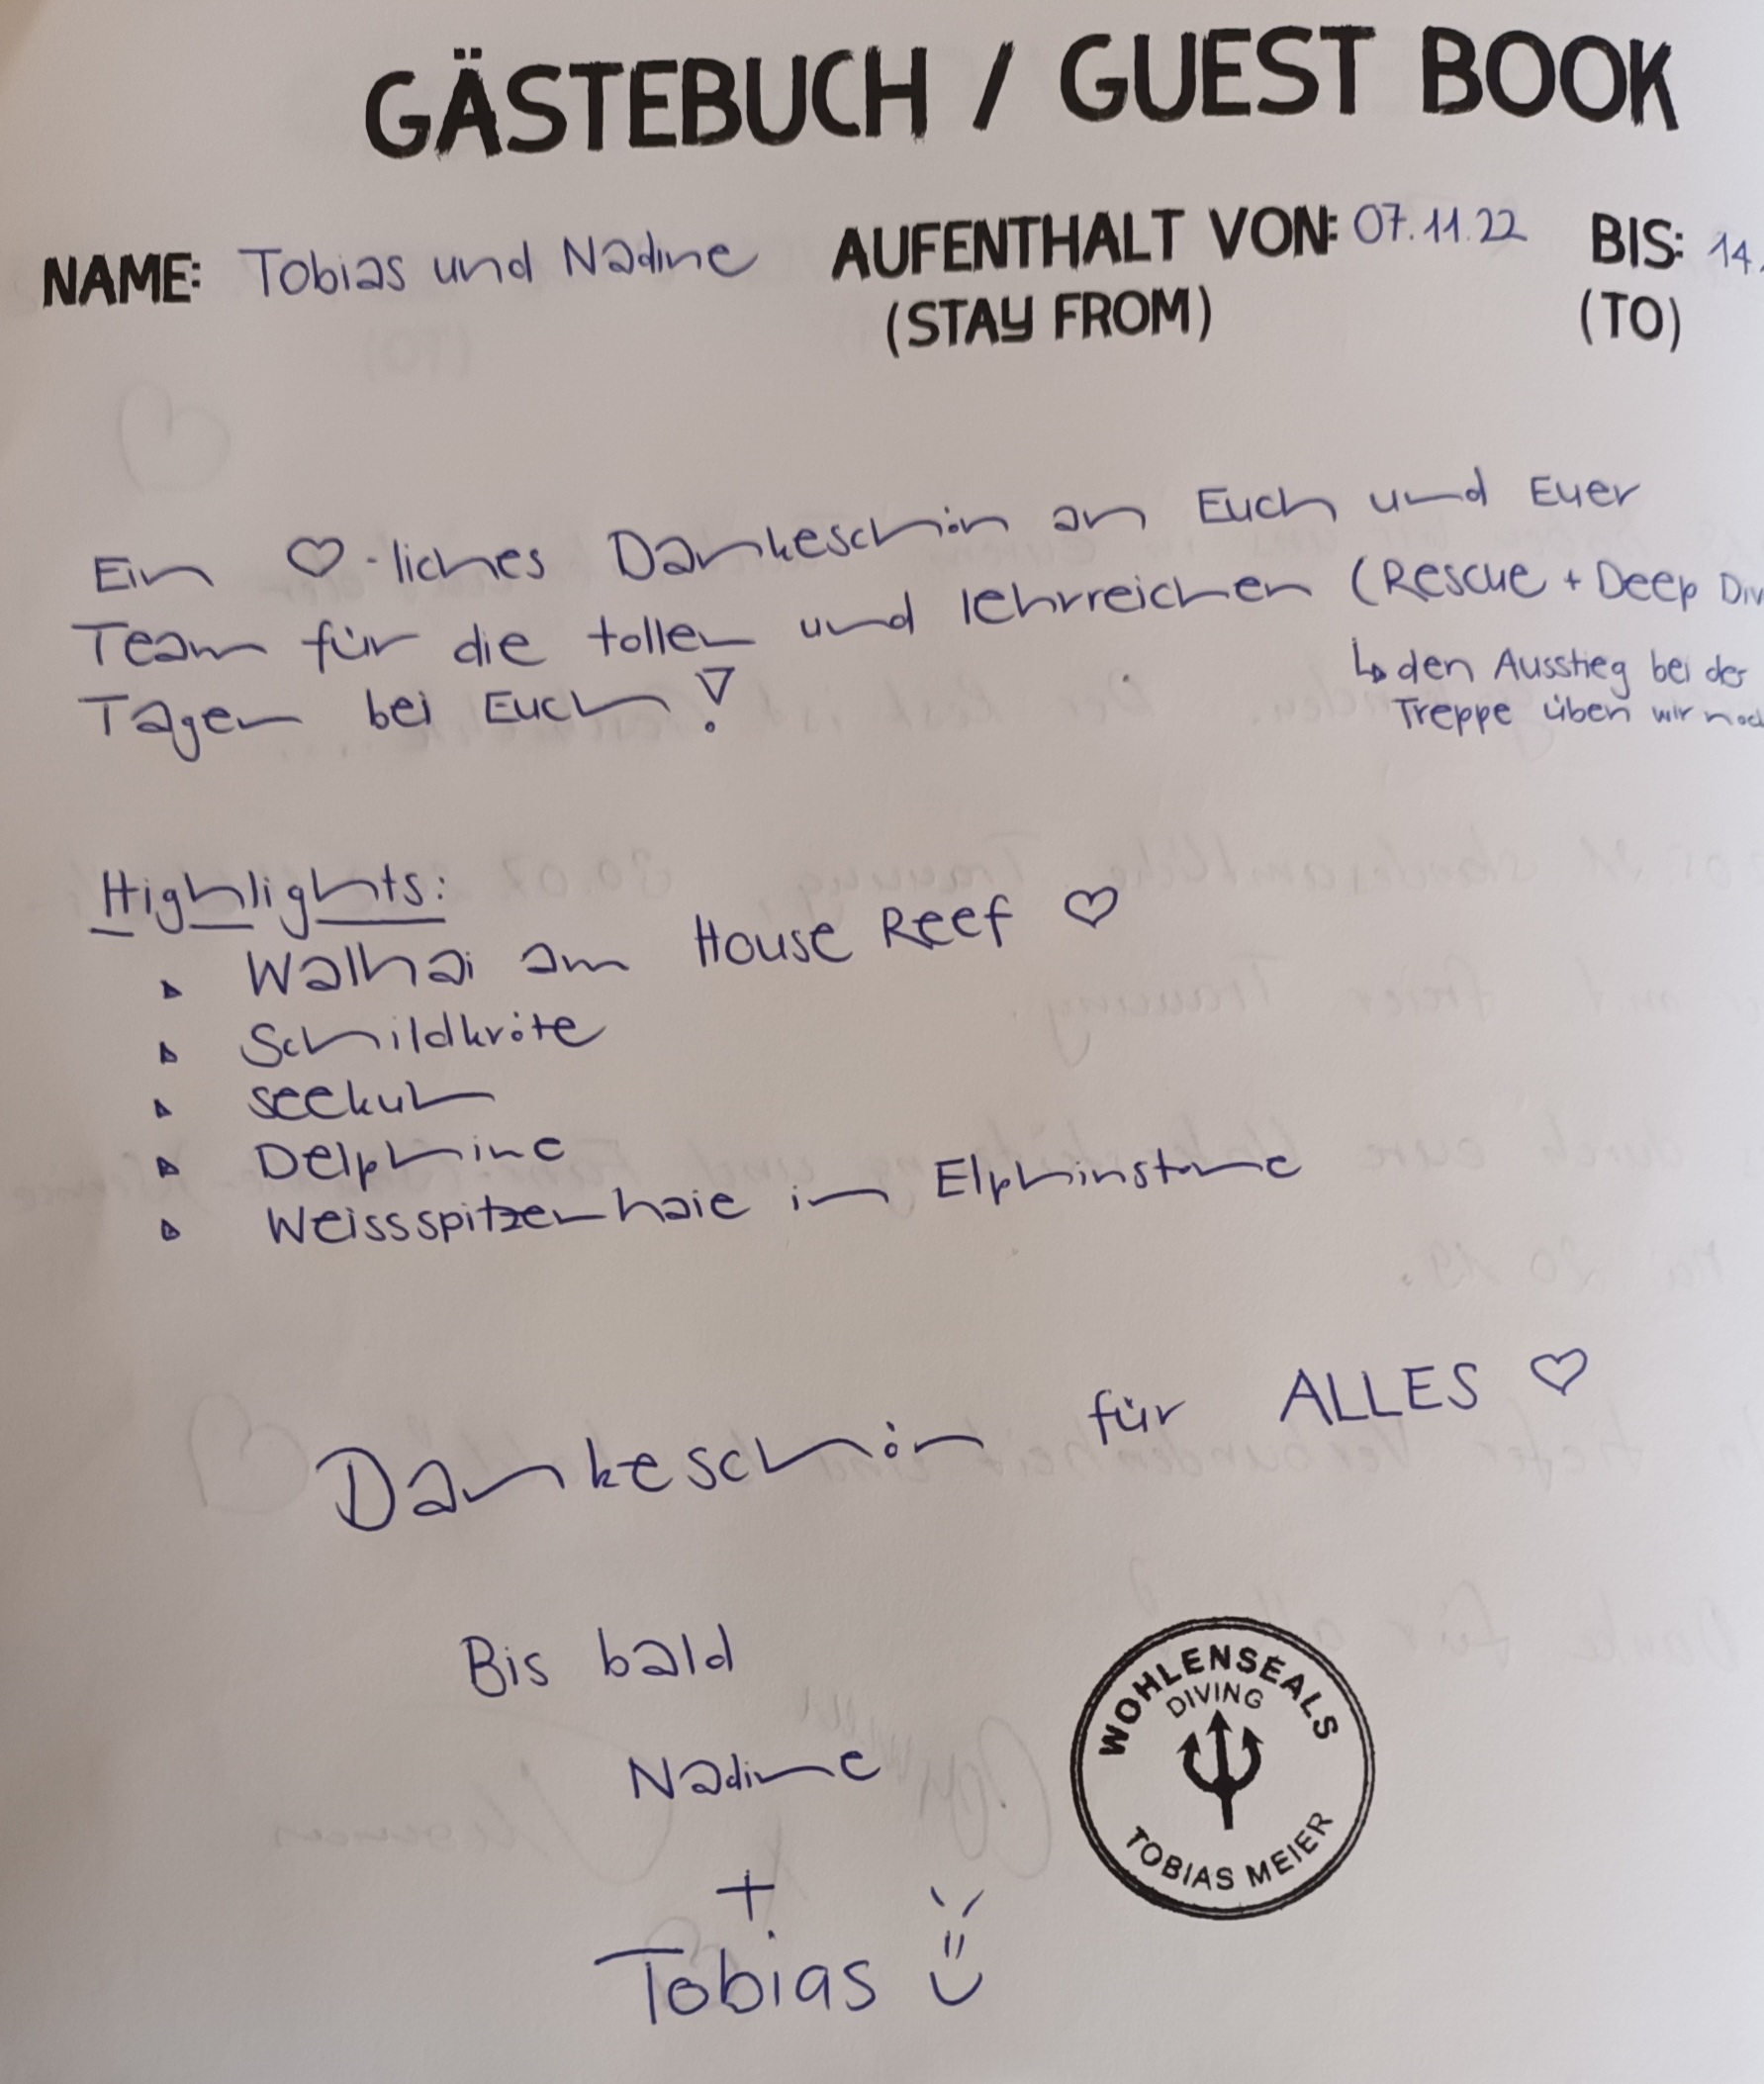 GÄSTEBUCH / GUEST BOOK
NAME: Tobias und Nadine AUFENTHALT VON: 07.11.22 BIS: 14.
(STAY FROM) (TO)
Ein ♡-liches Dankeschön an Euch und Euer
Team für die tollen und lehrreichen (Rescue + Deep Div
↳ den Ausstieg bei der
Treppe üben wir noch
Tagen bei Euch!
Highlights:
▹ Walhai am House Reef ♡
▹ Schildkröte
▹ Seekuh
▹ Delphine
▹ Weissspitzenhaie im Elphinstone
Dankeschön für ALLES ♡
Bis bald
Nadine
+
Tobias
WOHLENSEALS
DIVING
TOBIAS MEIER